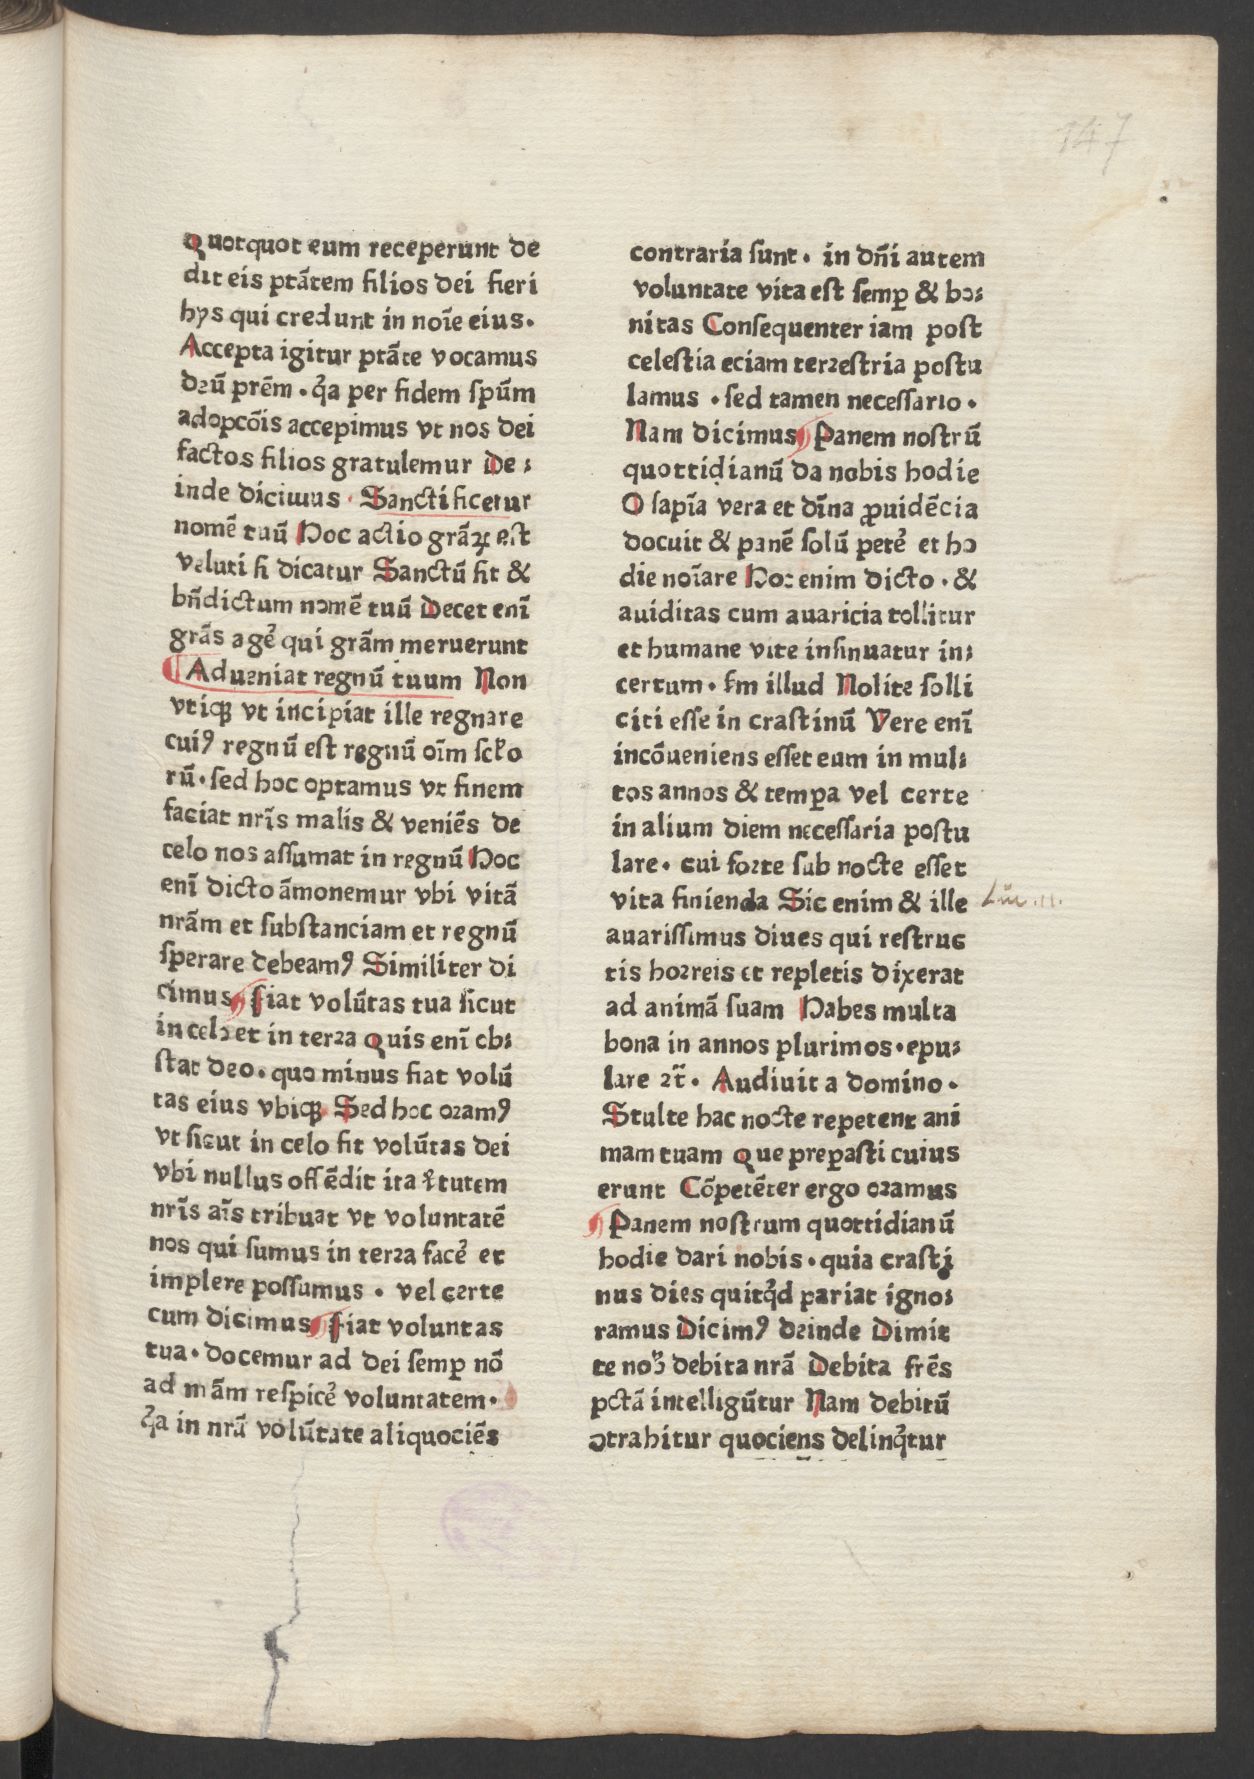 147
Quotquot eum receperunt de
dit eis ptātem filios dei fieri
hys qui credunt in noīe eius.
Accepta igitur ptāte vocamus
deū prēm . qͣa per fidem spūm
adopcōis accepimus vt nos dei
factos filios gratulemur De⸗
inde dicimus . Sanctificetur
nomē tuū Hoc actio grāꝝ est
veluti si dicatur Sanctū sit &
bn̄dictum nomē tuū Decet enī
grās agē qui grām meruerunt
Adueniat regnū tuum Non
vtiqꝫ vt incipiat ille regnare
cuiꝰ regnū est regnū oīm scł̓o
rū . sed hoc optamus vt finem
faciat nrīs malis & veniēs de
celo nos assumat in regnū Hoc
enī dicto āmonemur vbi vitā
nrām et substanciam et regnū
sperare debeamꝰ Similiter di
cimus Fiat volūtas tua sicut
in celo et in terra Quis enī ob⸗
stat deo . quo minus fiat volū
tas eius vbiqꝫ Sed hoc oramꝰ
vt sicut in celo fit volūtas dei
vbi nullus offēdit ita v̓tutem
nrīs aīs tribuat vt voluntatē
nos qui sumus in terra facē et
implere possumus . vel certe
cum dicimus Fiat voluntas
tua . docemur ad dei semꝑ nō
ad nrām respicē voluntatem .
qͣa in nrā volūtate aliquociēs
contraria sunt . in dn̄i autem
voluntate vita est semꝑ & bo⸗
nitas Consequenter iam post
celestia eciam terrestria postu
lamus . sed tamen necessario .
Nam dicimus Panem nostrū
quottidianū da nobis hodie
O sapīa vera et dīna ꝓuidēcia
docuit & panē solū petē et ho
die noīare Hoc enim dicto . &
auiditas cum auaricia tollitur
et humane vite insinuatur in⸗
certum . sm̄ illud Nolite solli
citi esse in crastinū Vere enī
incōueniens esset eum in mul⸗
tos annos & temꝑa vel certe
in alium diem necessaria postu
lare . cui forte sub nocte esset
vita finienda Sic enim & ille
auarissimus diues qui restruc
tis horreis et repletis dixerat
ad animā suam Habes multa
bona in annos plurimos . epu⸗
lare ⁊c̄ . Audiuit a domino .
Stulte hac nocte repetent ani
mam tuam Que preꝑasti cuius
erunt Cōpetēter ergo oramus
Panem nostrum quottidianū
hodie dari nobis . quia crasti
nus dies quitqͥd pariat igno⸗
ramus Dicimꝰ deinde Dimit
te nob̓ debita nrā Debita frēs
pctā intelligūtur Nam debitū
ↄtrahitur quociens delinqͥtur